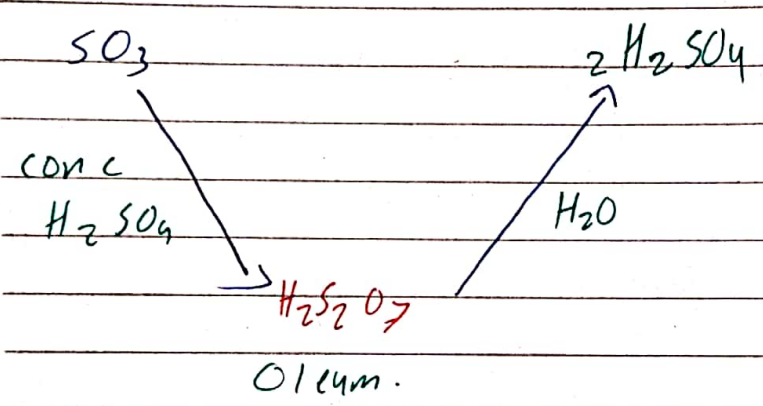 SO₃
2 H₂SO₄
conc
H₂SO₄
H₂O
H₂S₂O₇
Oleum.